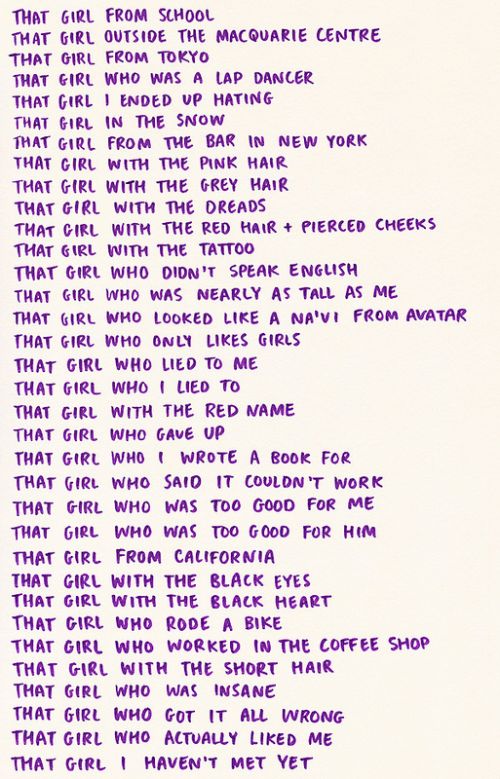 THAT GIRL FROM SCHOOL
THAT GIRL OUTSIDE THE MACQUARIE CENTRE
THAT GIRL FROM TOKYO
THAT GIRL WHO WAS A LAP DANCER
THAT GIRL I ENDED UP HATING
THAT GIRL IN THE SNOW
THAT GIRL FROM THE BAR IN NEW YORK
THAT GIRL WITH THE PINK HAIR
THAT GIRL WITH THE GREY HAIR
THAT GIRL WITH THE DREADS
THAT GIRL WITH THE RED HAIR + PIERCED CHEEKS
THAT GIRL WITH THE TATTOO
THAT GIRL WHO DIDN'T SPEAK ENGLISH
THAT GIRL WHO WAS NEARLY AS TALL AS ME
THAT GIRL WHO LOOKED LIKE A NA'VI FROM AVATAR
THAT GIRL WHO ONLY LIKES GIRLS
THAT GIRL WHO LIED TO ME
THAT GIRL WHO I LIED TO
THAT GIRL WITH THE RED NAME
THAT GIRL WHO GAVE UP
THAT GIRL WHO I WROTE A BOOK FOR
THAT GIRL WHO SAID IT COULDN'T WORK
THAT GIRL WHO WAS TOO GOOD FOR ME
THAT GIRL WHO WAS TOO GOOD FOR HIM
THAT GIRL FROM CALIFORNIA
THAT GIRL WITH THE BLACK EYES
THAT GIRL WITH THE BLACK HEART
THAT GIRL WHO RODE A BIKE
THAT GIRL WHO WORKED IN THE COFFEE SHOP
THAT GIRL WITH THE SHORT HAIR
THAT GIRL WHO WAS INSANE
THAT GIRL WHO GOT IT ALL WRONG
THAT GIRL WHO ACTUALLY LIKED ME
THAT GIRL I HAVEN'T MET YET